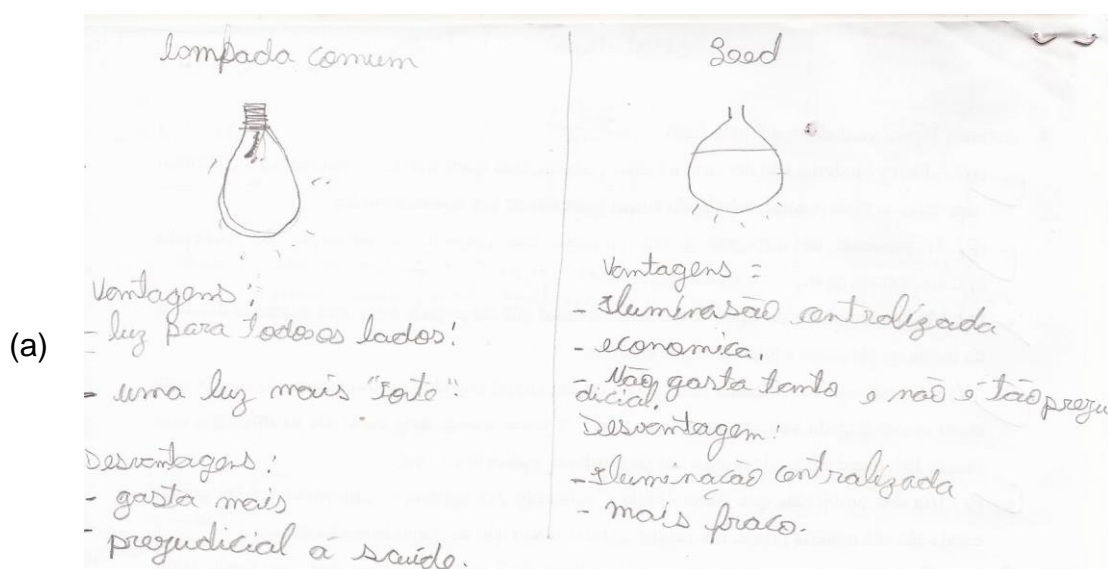 (a)
lompada comum
Vamtagens:
- luz para todos os lados!
- uma luz mais "Forte".
Desvamtagens:
- gasta mais
- prejudicial a saúde.
Leed
Vamtagens =
- Iluminasão centralizada
- economica.
- Não gasta tanto e não é tão preju
dicial.
Desvamtagem:
- Iluminação centralizada
- mais fraco.